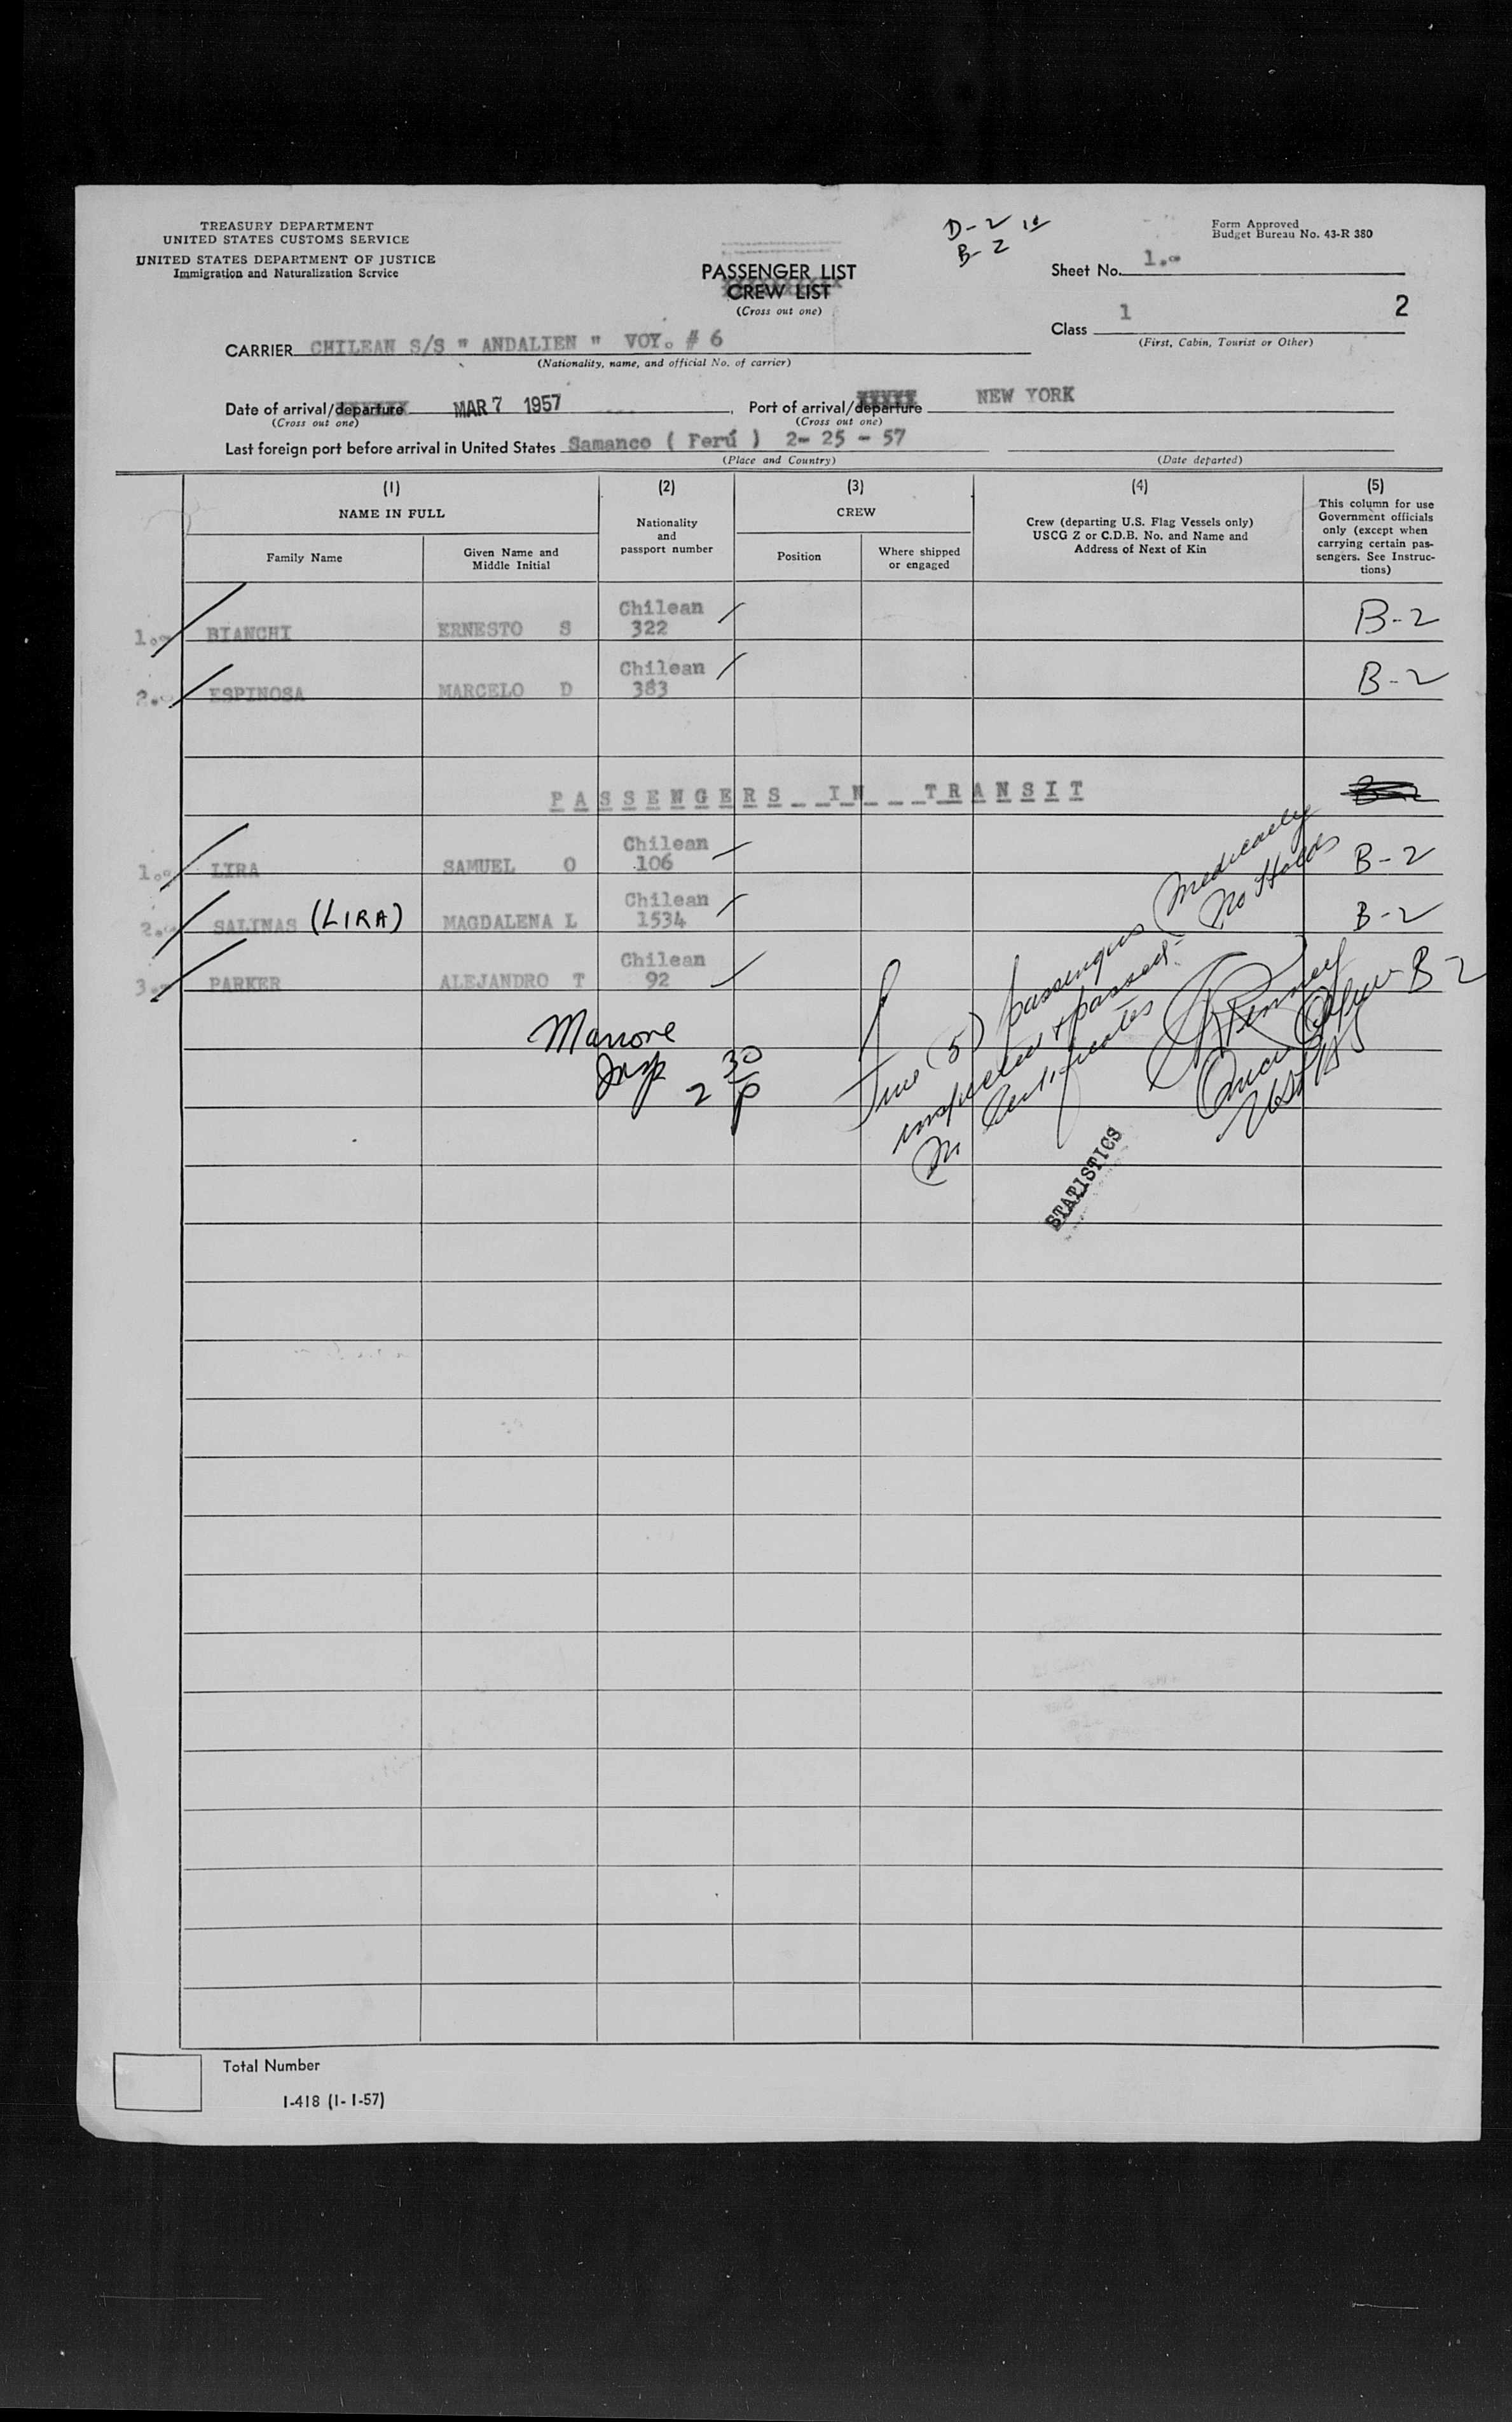 TREASURY DEPARTMENT
UNITED STATES CUSTOMS SERVICE
UNITED STATES DEPARTMENT OF JUSTICE
Immigration and Naturalization Service
D-2
B-2
Form Approved
Budget Bureau No. 43-R 380
PASSENGER LIST
CREW LIST
(Cross out one)
Sheet No. 1.
2
Class 1
(First, Cabin, Tourist or Other)
CARRIER CHILEAN S/S " ANDALIEN " VOY. # 6
(Nationality, name, and official No. of carrier)
Date of arrival/departure MAR 7 1957 , Port of arrival/departure NEW YORK
(Cross out one) (Cross out one)
Last foreign port before arrival in United States Samanco ( Perú ) 2- 25 - 57
(Place and Country) (Date departed)
(1) (2) (3) (4) (5)
NAME IN FULL
Family Name
Given Name and
Middle Initial
Nationality
and
passport number
CREW
Position
Where shipped
or engaged
Crew (departing U.S. Flag Vessels only)
USCG Z or C.D.B. No. and Name and
Address of Next of Kin
This column for use
Government officials
only (except when
carrying certain pas-
sengers. See Instruc-
tions)
1. BIANCHI ERNESTO S Chilean 322 B-2
2. ESPINOSA MARCELO D Chilean 383 B-2
PASSENGERS IN TRANSIT
1. LIRA SAMUEL O Chilean 106 B-2
2. SALINAS (LIRA) MAGDALENA L Chilean 1534 B-2
3. PARKER ALEJANDRO T Chilean 92 B-2
Marrone
Insp 2 30 P
Five (5) passengers medically
inspected & passed - No Holds
No Certificates
STATISTICS
Total Number
I-418 (1-1-57)